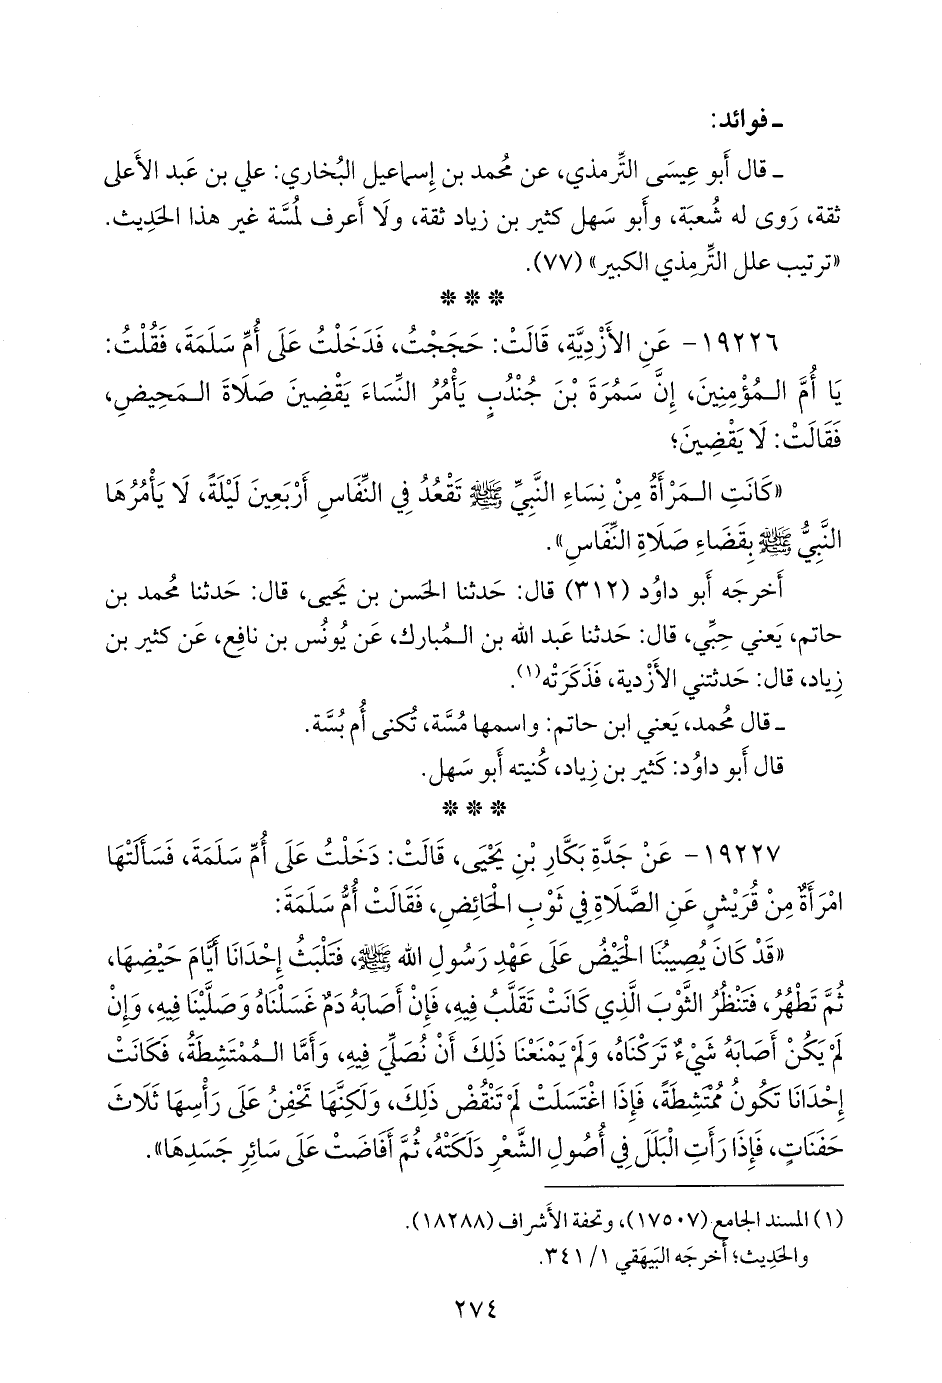 ـ فوائد:
ـ قال أَبو عِيسَى التِّرمذي، عن مُحمد بن إِسماعيل البُخاري: علي بن عَبد الأَعلى
ثقة، رَوى له شُعبَة، وأَبو سَهل كثير بن زياد ثقة، ولَا أَعرف لمُسَّة غير هذا الحَدِيث.
«ترتيب علل التِّرمِذي الكبير» (٧٧).
* * *
١٩٢٢٦- عَنِ الأَزْدِيَّةِ، قَالَتْ: حَجَجْتُ، فَدَخَلْتُ عَلَى أُمِّ سَلَمَةَ، فَقُلْتُ:
يَا أُمَّ الـمُؤْمِنِينَ، إِنَّ سَمُرَةَ بْنَ جُنْدُبٍ يَأْمُرُ النِّسَاءَ يَقْضِينَ صَلَاةَ الـمَحِيضِ،
فَقَالَتْ: لَا يَقْضِينَ؛
«كَانَتِ الـمَرْأَةُ مِنْ نِسَاءِ النَّبِيِّ ﷺ تَقْعُدُ فِي النِّفَاسِ أَرْبَعِينَ لَيْلَةً، لَا يَأْمُرُهَا
النَّبِيُّ ﷺ بِقَضَاءِ صَلَاةِ النِّفَاسِ».
أَخرجَه أَبو داوُد (٣١٢) قال: حَدثنا الحَسن بن يَحيى، قال: حَدثنا مُحمد بن
حاتم، يَعني حِبِّي، قال: حَدثنا عَبد الله بن الـمُبارك، عَن يُونُس بن نافِع، عَن كثير بن
زِياد، قال: حَدثتني الأَزْدية، فَذَكَرَته(١).
ـ قال مُحمد، يَعني ابن حاتم: واسمها مُسَّة، تُكنى أُم بُسَّة.
قال أَبو داوُد: كَثير بن زِياد، كُنيته أَبو سَهل.
* * *
١٩٢٢٧- عَنْ جَدَّةِ بَكَّارِ بْنِ يَحْيَى، قَالَتْ: دَخَلْتُ عَلَى أُمِّ سَلَمَةَ، فَسَأَلَتْهَا
امْرَأَةٌ مِنْ قُرَيْشٍ عَنِ الصَّلَاةِ فِي ثَوْبِ الحَائِضِ، فَقَالَتْ أُمُّ سَلَمَةَ:
«قَدْ كَانَ يُصِيبُنَا الْحَيْضُ عَلَى عَهْدِ رَسُولِ الله ﷺ، فَتَلْبَثُ إِحْدَانَا أَيَّامَ حَيْضِهَا،
ثُمَّ تَطْهُرُ، فَتَنْظُرُ الثَّوْبَ الَّذِي كَانَتْ تَقَلَّبُ فِيهِ، فَإِنْ أَصَابَهُ دَمٌ غَسَلْنَاهُ وَصَلَّيْنَا فِيهِ، وَإِنْ
لَمْ يَكُنْ أَصَابَهُ شَيْءٌ تَرَكْنَاهُ، وَلَمْ يَمْنَعْنَا ذَلِكَ أَنْ نُصَلِّيَ فِيهِ، وَأَمَّا الـمُمْتَشِطَةُ، فَكَانَتْ
إِحْدَانَا تَكُونُ مُمْتَشِطَةً، فَإِذَا اغْتَسَلَتْ لَمْ تَنْقُضْ ذَلِكَ، وَلَكِنَّهَا تَحْفِنُ عَلَى رَأْسِهَا ثَلَاثَ
حَفَنَاتٍ، فَإِذَا رَأَتِ الْبَلَلَ فِي أُصُولِ الشَّعْرِ دَلَكَتْهُ، ثُمَّ أَفَاضَتْ عَلَى سَائِرِ جَسَدِهَا».
(١) المسند الجامع (١٧٥٠٧)، وتحفة الأَشراف (١٨٢٨٨).
والحَدِيث؛ أَخرجَه البَيهَقي ١/ ٣٤١.
٢٧٤